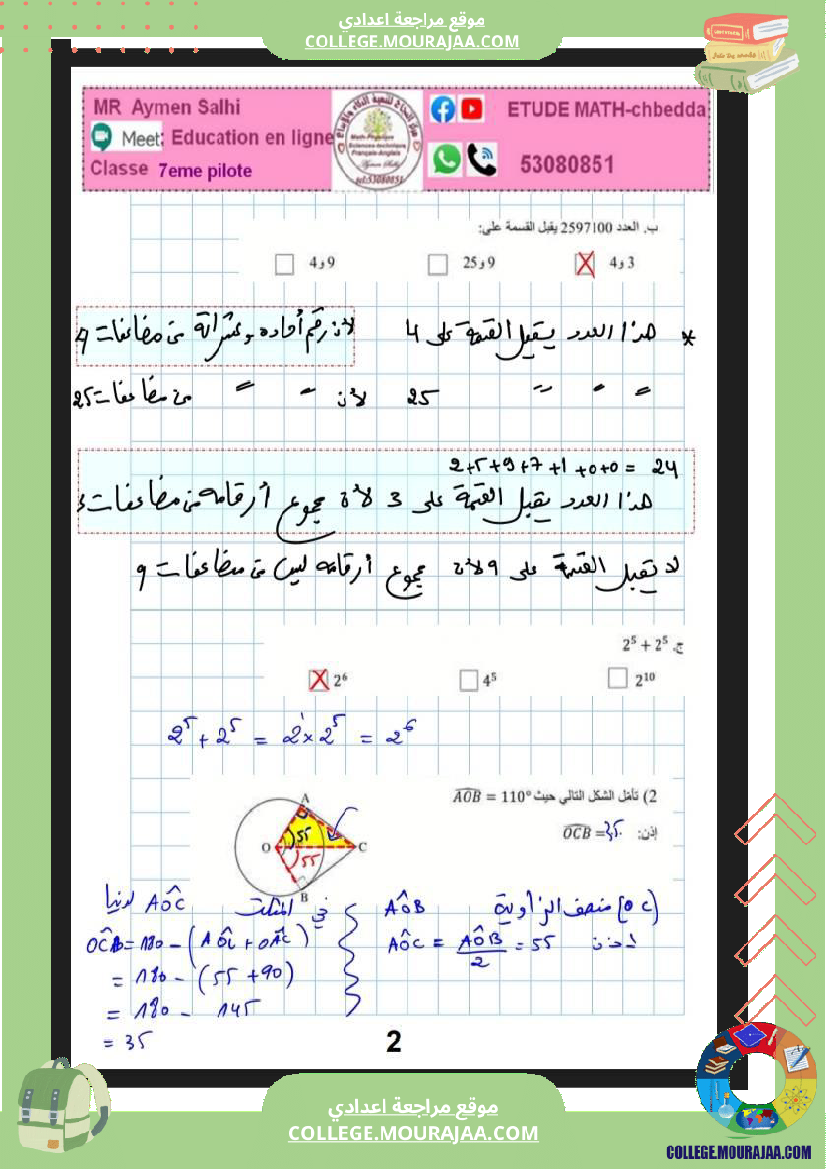 موقع مراجعة اعدادي
COLLEGE.MOURAJAA.COM
MR Aymen Salhi
Meet: Education en ligne
Classe 7eme pilote
ETUDE MATH-chbedda
53080851
ب. العدد 2597100 يقبل القسمة على:
3 و4
9 و25
9 و4
* هذا العدد يقبل القسمة على 4 لأن رقم أحاده وعشراته من مضاعفات 4
" " " 25 لأن " " من مضاعفات 25
2+5+9+7+1+0+0 = 24
هذا العدد يقبل القسمة على 3 لأن مجموع أرقامه من مضاعفات 3
لا يقبل القسمة على 9 لأن مجموع أرقامه ليس من مضاعفات 9
ج. 2⁵ + 2⁵
2¹⁰
4⁵
2⁶
2⁵ + 2⁵ = 2¹ × 2⁵ = 2⁶
2) تأمل الشكل التالي حيث AOB = 110°
إذن: OCB = 35
A
O
C
B
55
55
[OC) منصف الزاوية AÔB
إذن AÔC = AÔB/2 = 55
في المثلث AOC لدينا
OCA = 180 - (AÔC + OÂC)
= 180 - (55 + 90)
= 180 - 145
= 35
2
موقع مراجعة اعدادي
COLLEGE.MOURAJAA.COM
COLLEGE.MOURAJAA.COM